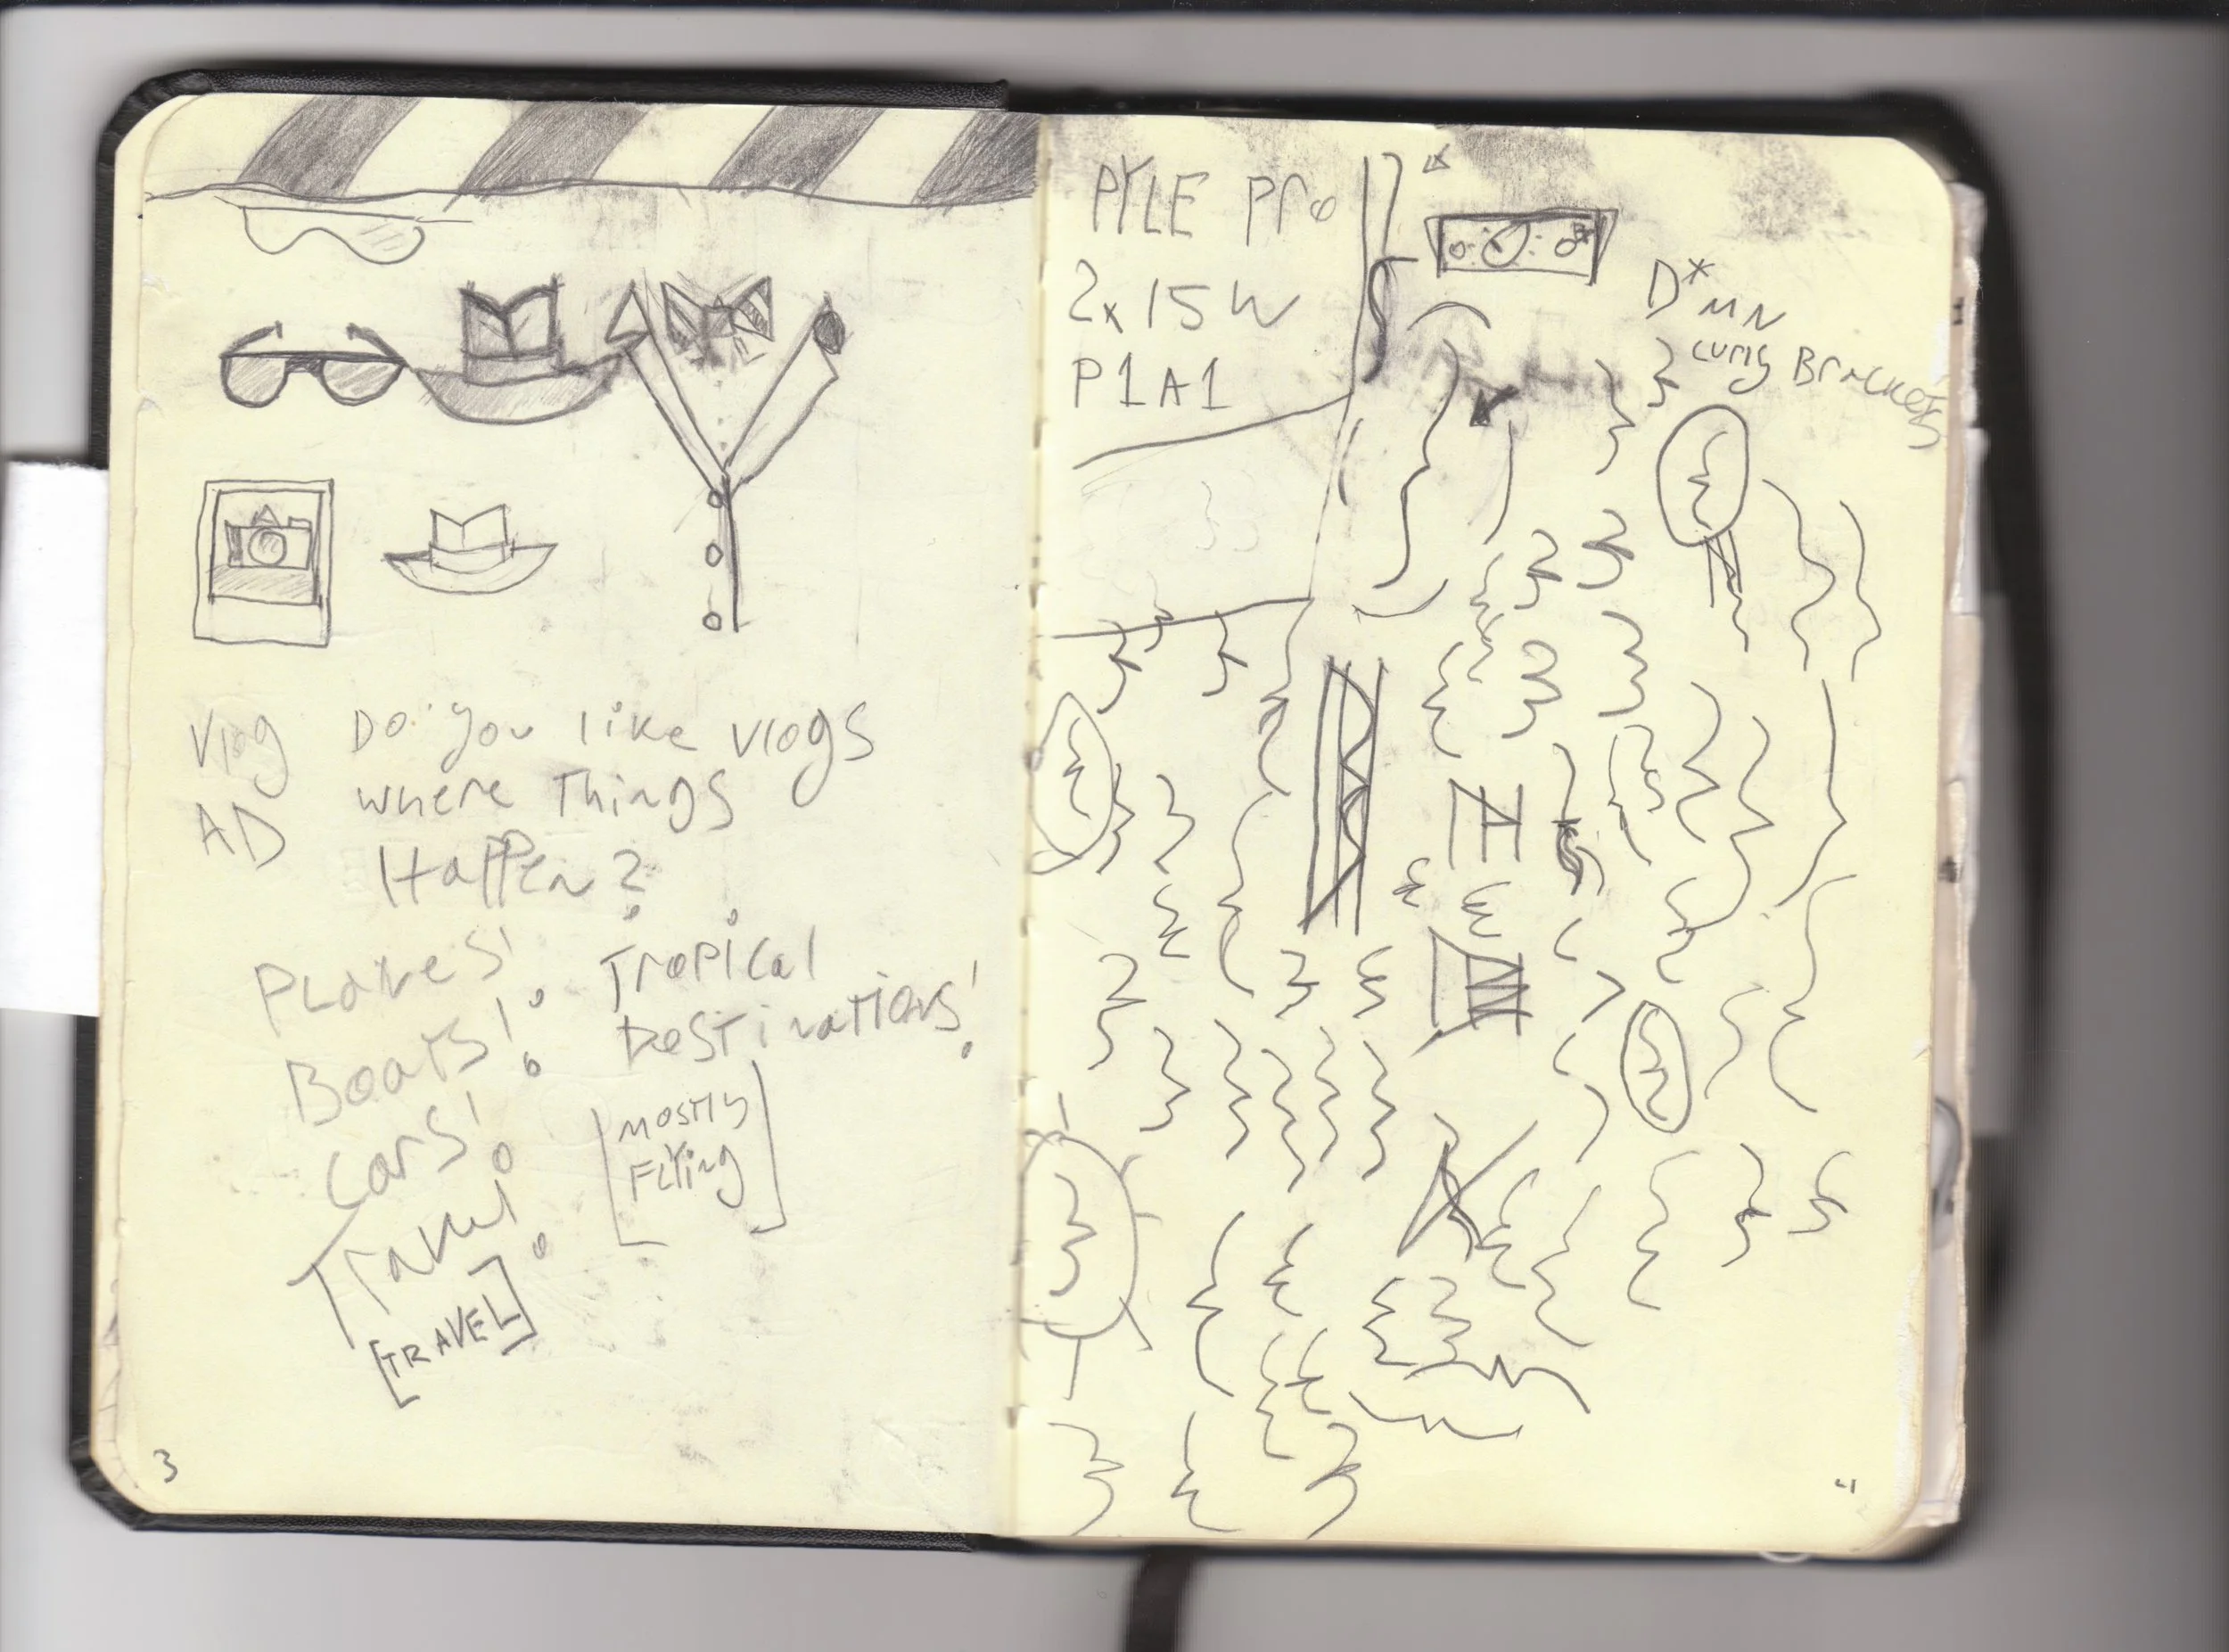 Vlog
AD
Do you like vlogs
where Things
Happen?
Planes!
Boats!
Cars!
Travel!
[TRAVEL]
Tropical
Destinations!
[Mostly
Flying]
3
PYLE Pro
2x15W
P1A1
D*MN
curly Brackets
4